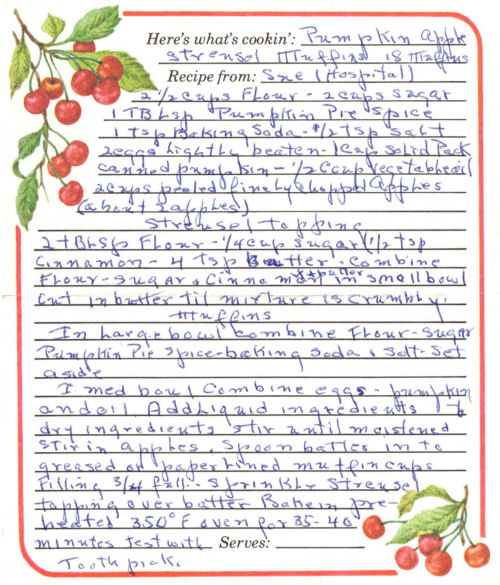 Here's what's cookin': Pumpkin Apple
streusel Muffins 18 Muffins
Recipe from: Sue (Hospital)
2 1/2 cups Flour - 2 cups sugar
1 TBLsp Pumpkin Pie Spice
1 tsp Baking Soda - 1/2 tsp salt
2 eggs Lightly beaten - 1 Cup Solid Pack
canned pumpkin - 1/2 Ccup vegetable oil
2 cups peeled finely chopped Apples
(about 2 apples)
Streusel topping
2 tBLSp FLour - 1/4 cup sugar 1/2 tsp
Cinnamon - 4 tsp butter. combine
FLour - sugar & Cinnamon + butter in small bowl
Cut in butter til mixture is crumbly.
Muffins
In Large bowl combine FLour - sugar
Pumpkin Pie spice - baking soda & salt - set
aside
I med bowl Combine eggs - pumpkin
and oil. Add Liquid ingredients to
dry ingredients stir until moistened
Stir in apples. Spoon batter in to
greased or paper lined muffin cups
Filling 3/4 full - sprinkle Streusel
topping over batter Bake in pre-
heated 350°F oven for 35-40
minutes test with Serves:
Tooth pick.